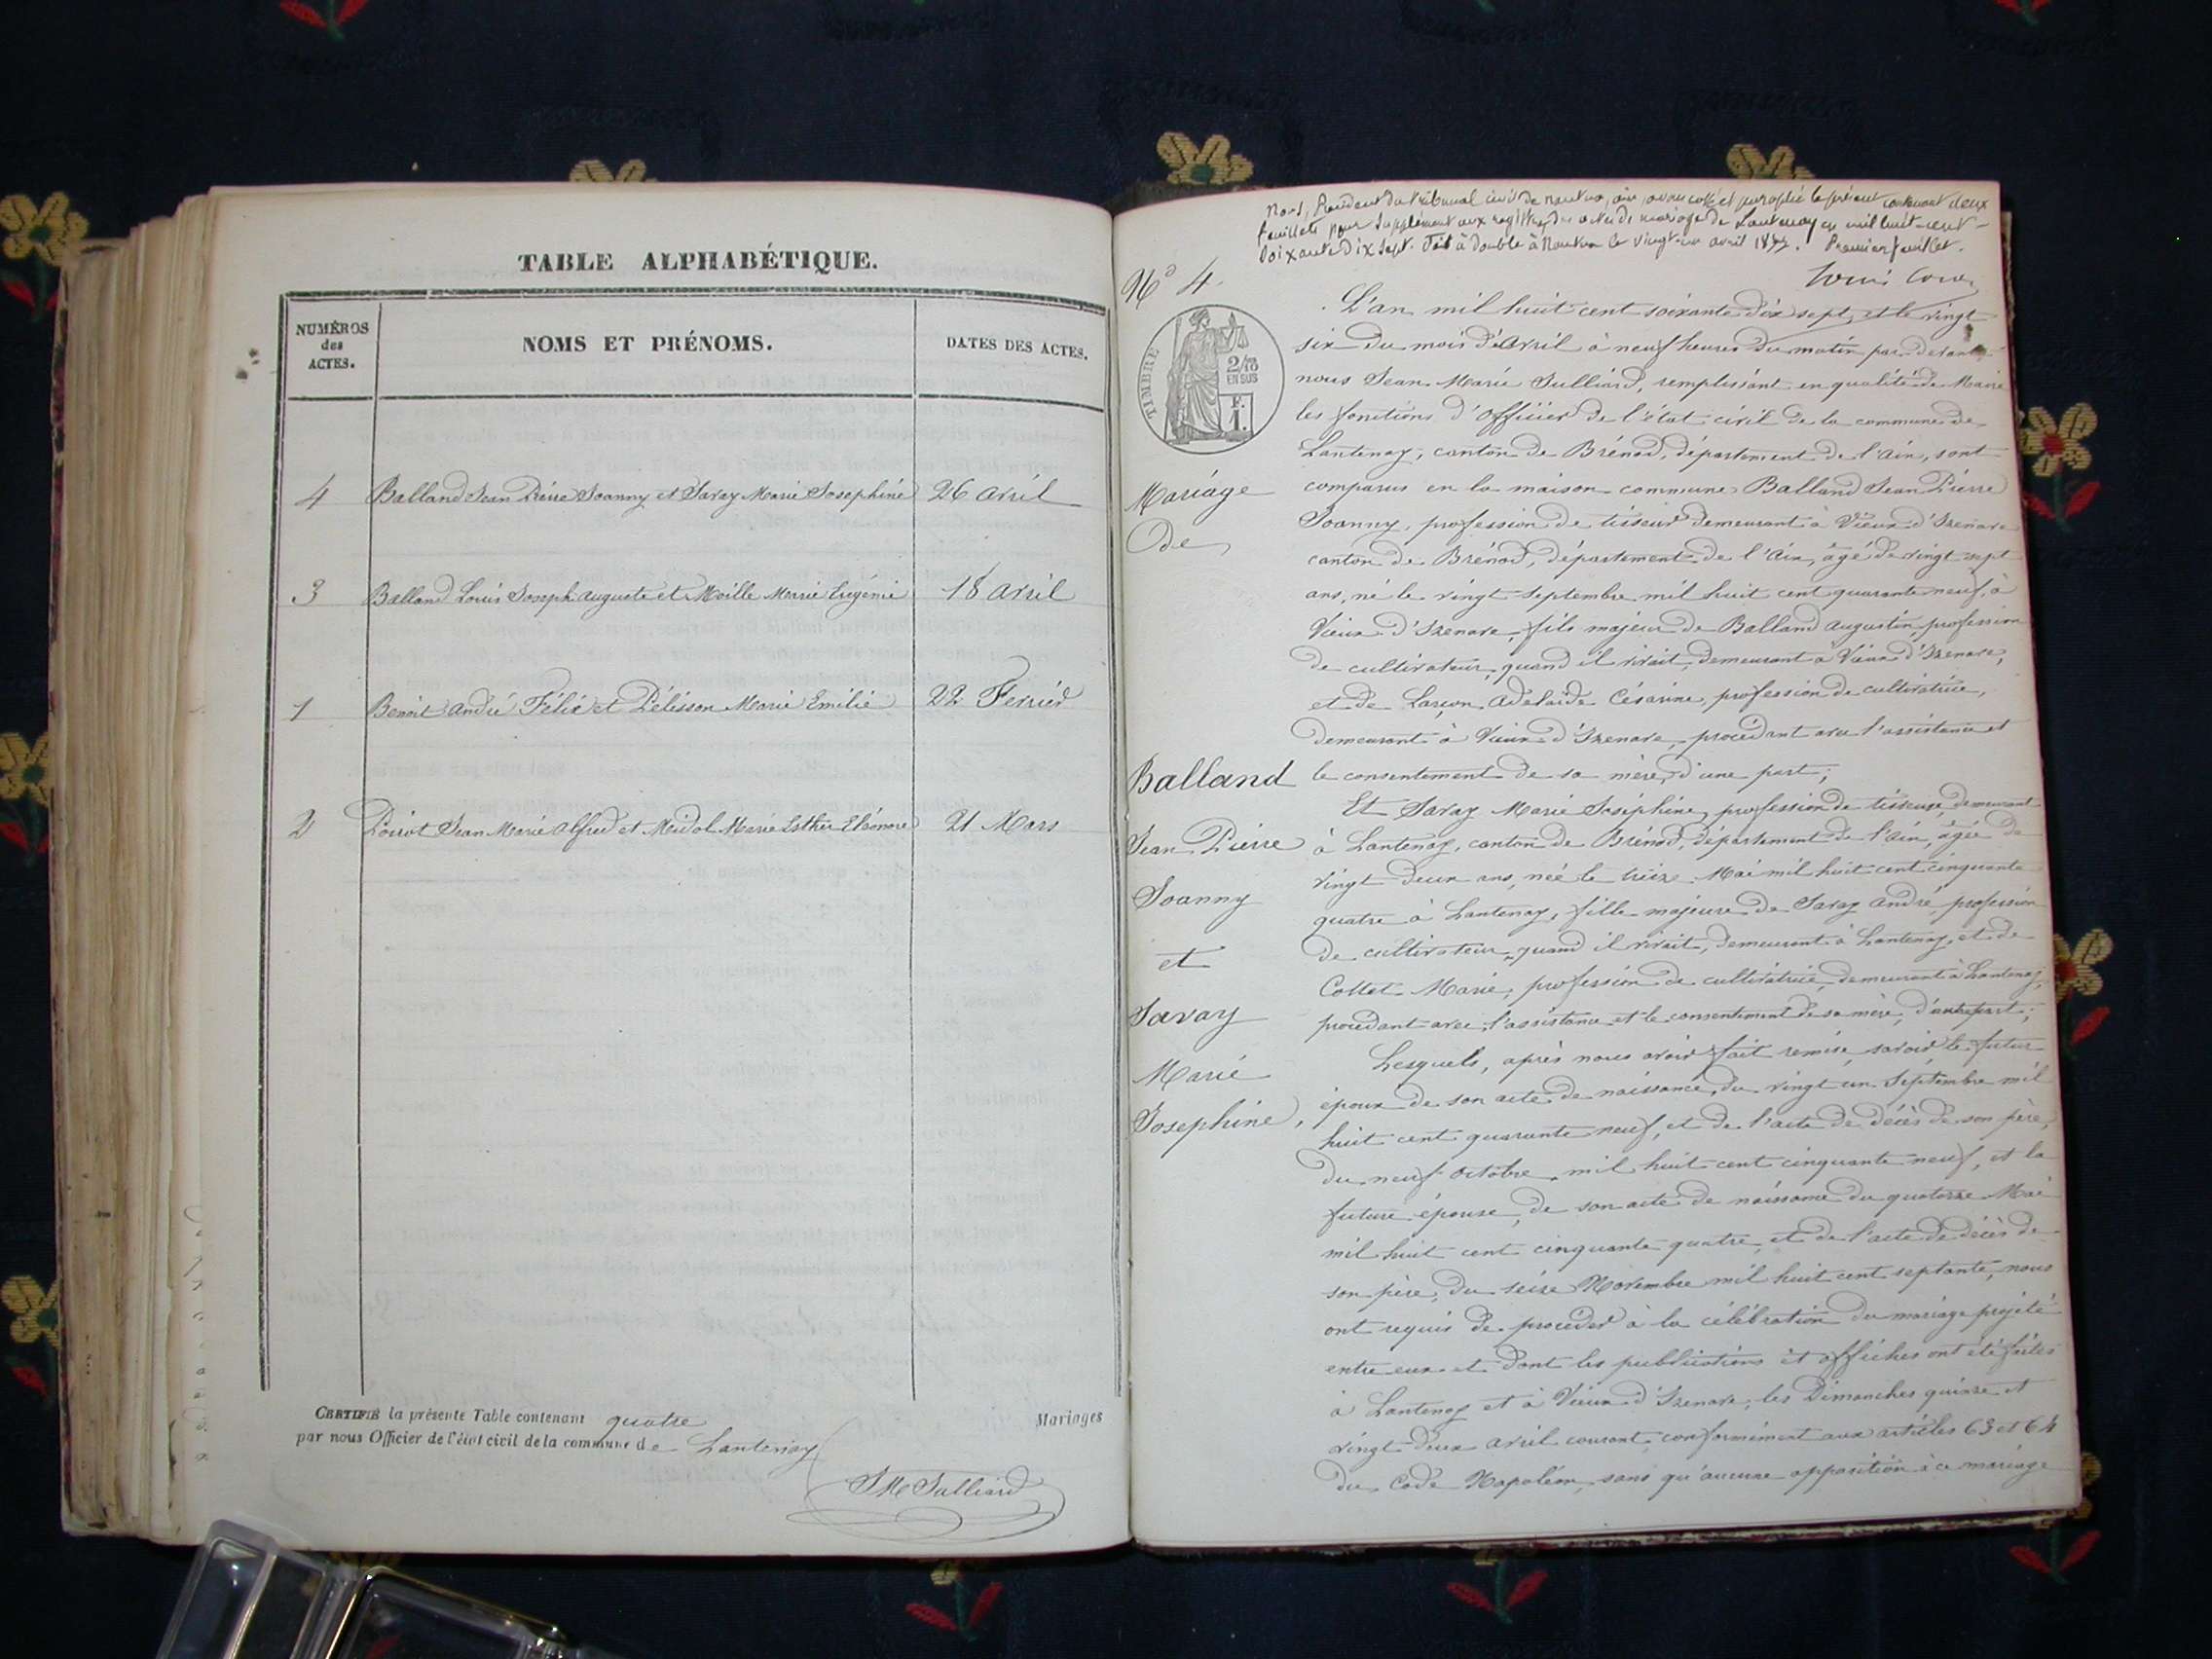 TABLE ALPHABÉTIQUE.
NUMÉROS
des
ACTES.
NOMS ET PRÉNOMS.
DATES DES ACTES.
4 Balland Jean Pierre Joanny et Savay Marie Josephine 26 avril
3 Balland Louis Joseph auguste et Moille Marie Eugénie 18 avril
1 Benoit andré Félix et Pélisson Marie Emilie 22 Fevrier
2 Poirot Jean Marie alfred et Midol Marie Esther Eléonore 21 Mars
CERTIFIÉ la présente Table contenant quatre Mariages
par nous Officier de l'état civil de la commune de Lantenay
JM Julliard
Nous, Président du tribunal civil de nantua, ain, avons coté et paraphé le présent contenant deux
feuillets pour supplément aux registres des actes de mariage de Lantenay en mil huit-cent-
soixante dix sept. Fait à double à Nantua le vingt-un avril 1877. Premier feuillet.
N° 4.
TIMBRE
2/10
EN SUS
F.
1.
Mariage
de
Balland
Jean Pierre
Joanny
et
Savay
Marie
Josephine,
L'an mil huit cent soixante dix sept, et le vingt
six du mois d'avril à neuf heures du matin par devant
nous Jean Marie Julliard, remplissant en qualité de Maire
les fonctions d'officier de l'état civil de la commune de
Lantenay, canton de Brénod, département de l'ain, sont
comparus en la maison commune Balland Jean Pierre
Joanny, profession de tisseur demeurant à Vieux d'Izenave
canton de Brénod, département de l'Ain, âgé de vingt sept
ans, né le vingt septembre mil huit cent quarante neuf, à
Vieux d'Izenave, fils majeur de Balland augustin, profession
de cultivateur, quand il vivait, demeurant à Vieux d'Izenave,
et de Larçon adelaïde Césarine, profession de cultivatrice,
demeurant à Vieux d'Izenave, procédant avec l'assistance et
le consentement de sa mère, d'une part;
Et Savay Marie Joséphine, profession de tisseuse, demeurant
à Lantenay, canton de Brénod, département de l'ain, âgée de
vingt deux ans, née le treize Mai mil huit cent cinquante
quatre à Lantenay, fille majeure de Savay andré, profession
de cultivateur, quand il vivait, demeurant à Lantenay, et de
Collet Marie, profession de cultivatrice, demeurant à Lantenay,
procédant avec l'assistance et le consentement de sa mère, d'autre part;
Lesquels, après nous avoir fait remise, savoir le futur
époux de son acte de naissance, du vingt un Septembre mil
huit cent quarante neuf, et de l'acte de décès de son père,
du neuf octobre mil huit cent cinquante neuf, et la
future épouse, de son acte de naissance du quatorze Mai
mil huit cent cinquante quatre, et de l'acte de décès de
son père, du seize Novembre mil huit cent septante, nous
ont requis de procéder à la célébration du mariage projeté
entre eux et dont les publications et affiches ont été faites
à Lantenay et à Vieux d'Izenave, les Dimanches quinze et
vingt deux avril courant, conformément aux articles 63 et 64
du Code Napoléon, sans qu'aucune opposition à ce mariage